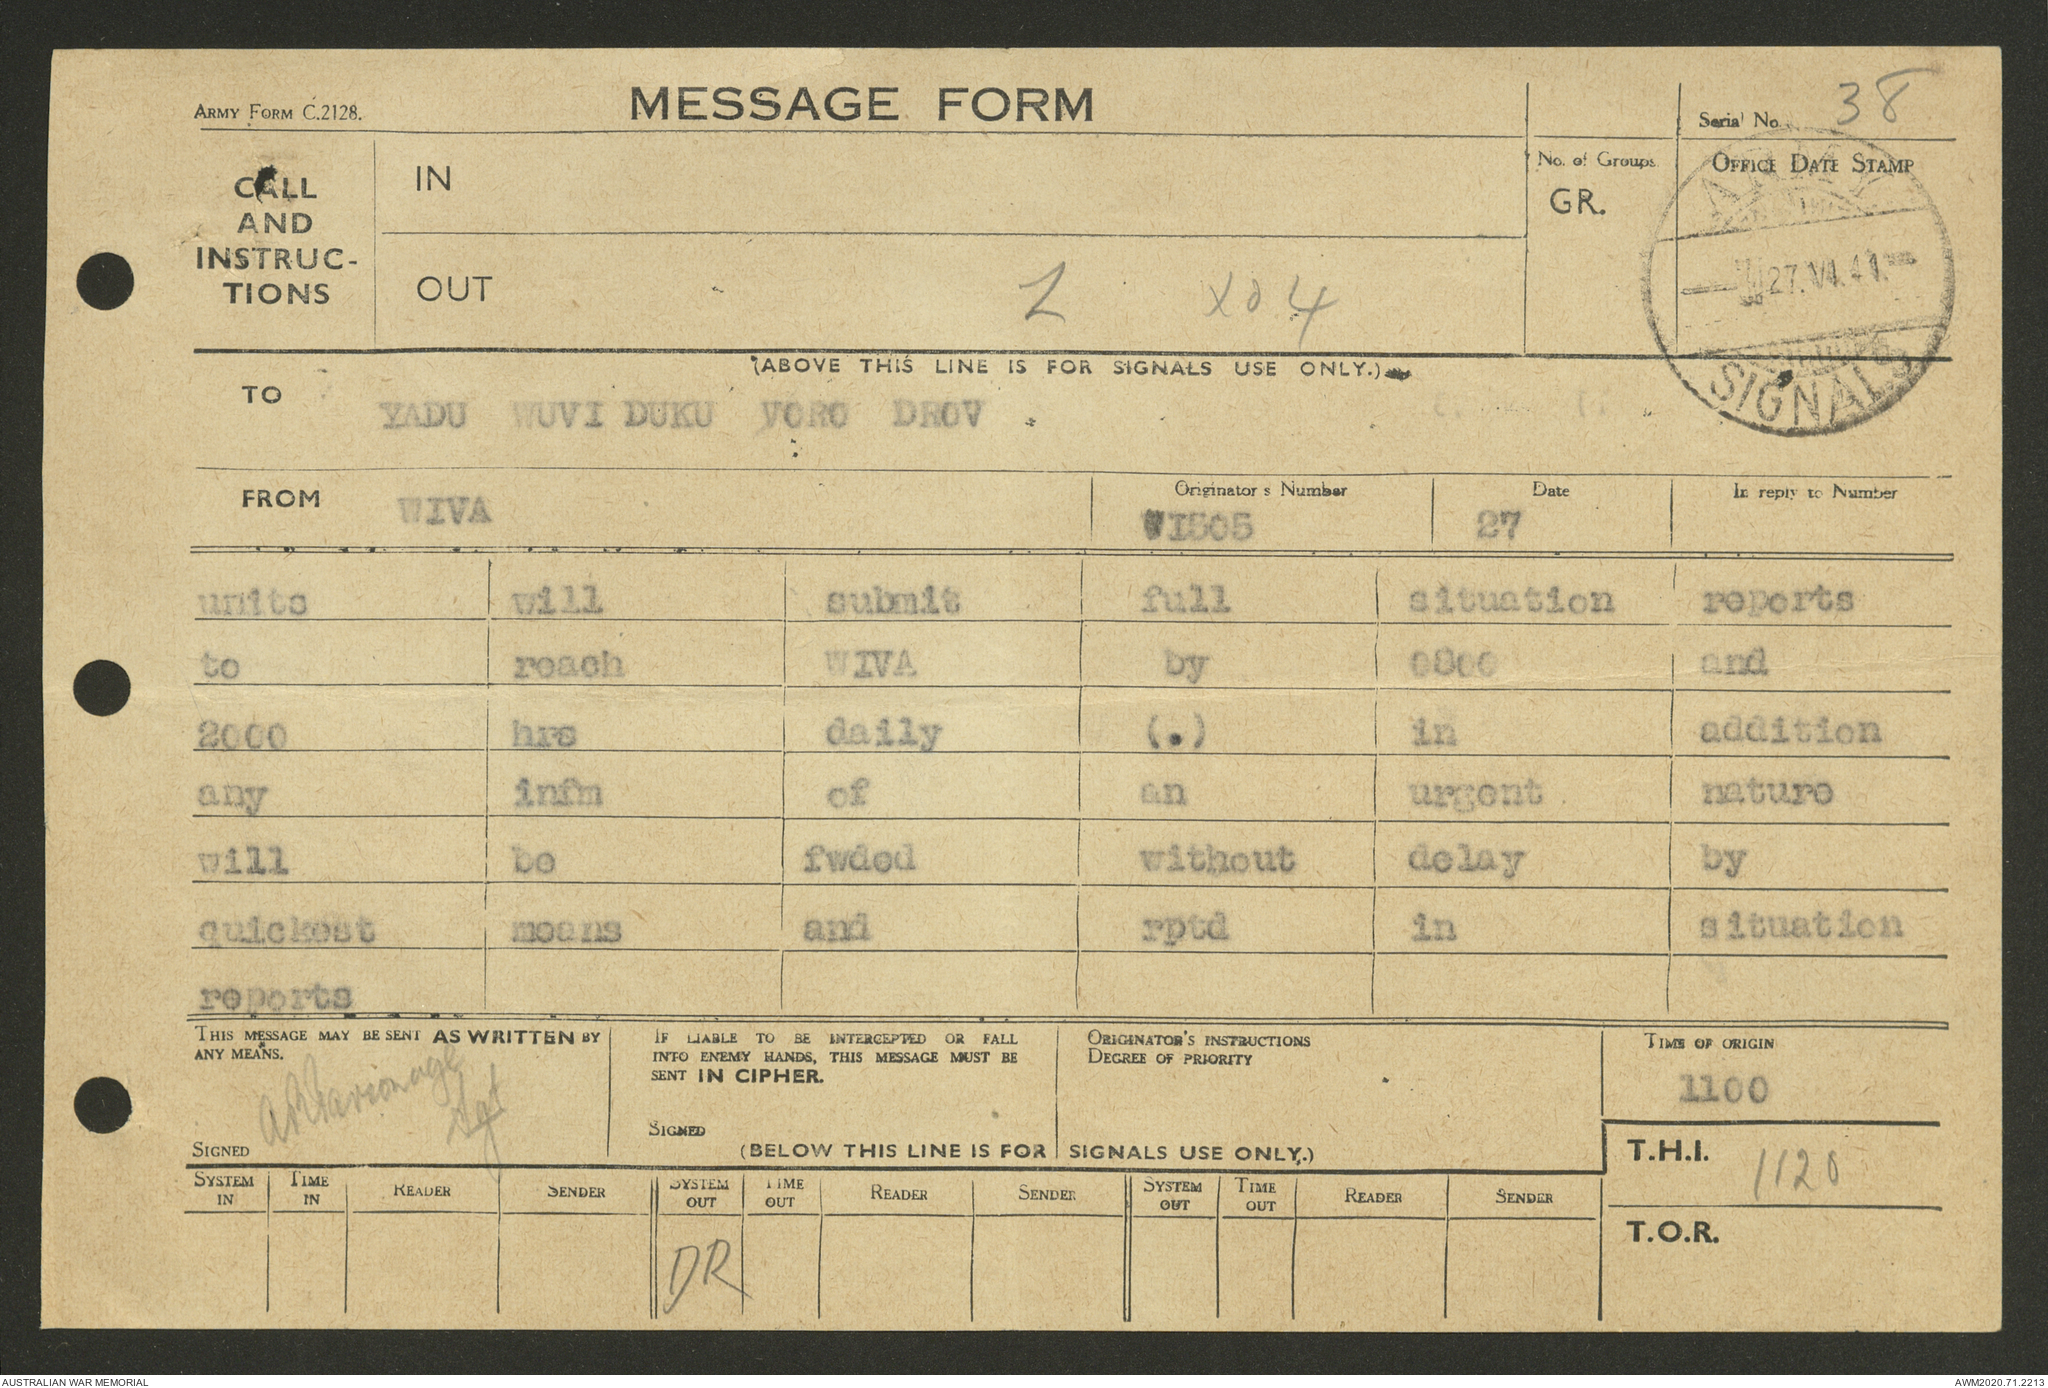 ARMY FORM C.2128.
MESSAGE FORM
Serial No. 38
CALL
AND
INSTRUC-
TIONS
IN
No. of Groups
GR.
OFFICE DATE STAMP
ARMY
27.VI.41
SIGNALS
OUT
(ABOVE THIS LINE IS FOR SIGNALS USE ONLY.)
TO YADU WUVI DUKU YORO DROV
FROM WIVA
Originator's Number
WI505
Date
27
In reply to Number
units will submit full situation reports
to reach WIVA by 0800 and
2000 hrs daily (.) in addition
any infm of an urgent nature
will be fwded without delay by
quickest means and rptd in situation
reports
THIS MESSAGE MAY BE SENT AS WRITTEN BY
ANY MEANS.
SIGNED
IF LIABLE TO BE INTERCEPTED OR FALL
INTO ENEMY HANDS, THIS MESSAGE MUST BE
SENT IN CIPHER.
SIGNED
ORIGINATOR'S INSTRUCTIONS
DEGREE OF PRIORITY
TIME OF ORIGIN
1100
(BELOW THIS LINE IS FOR SIGNALS USE ONLY.)
T.H.I. 1120
T.O.R.
SYSTEM IN TIME IN READER SENDER SYSTEM OUT TIME OUT READER SENDER SYSTEM OUT TIME OUT READER SENDER
DR
AUSTRALIAN WAR MEMORIAL
AWM2020.71.2213